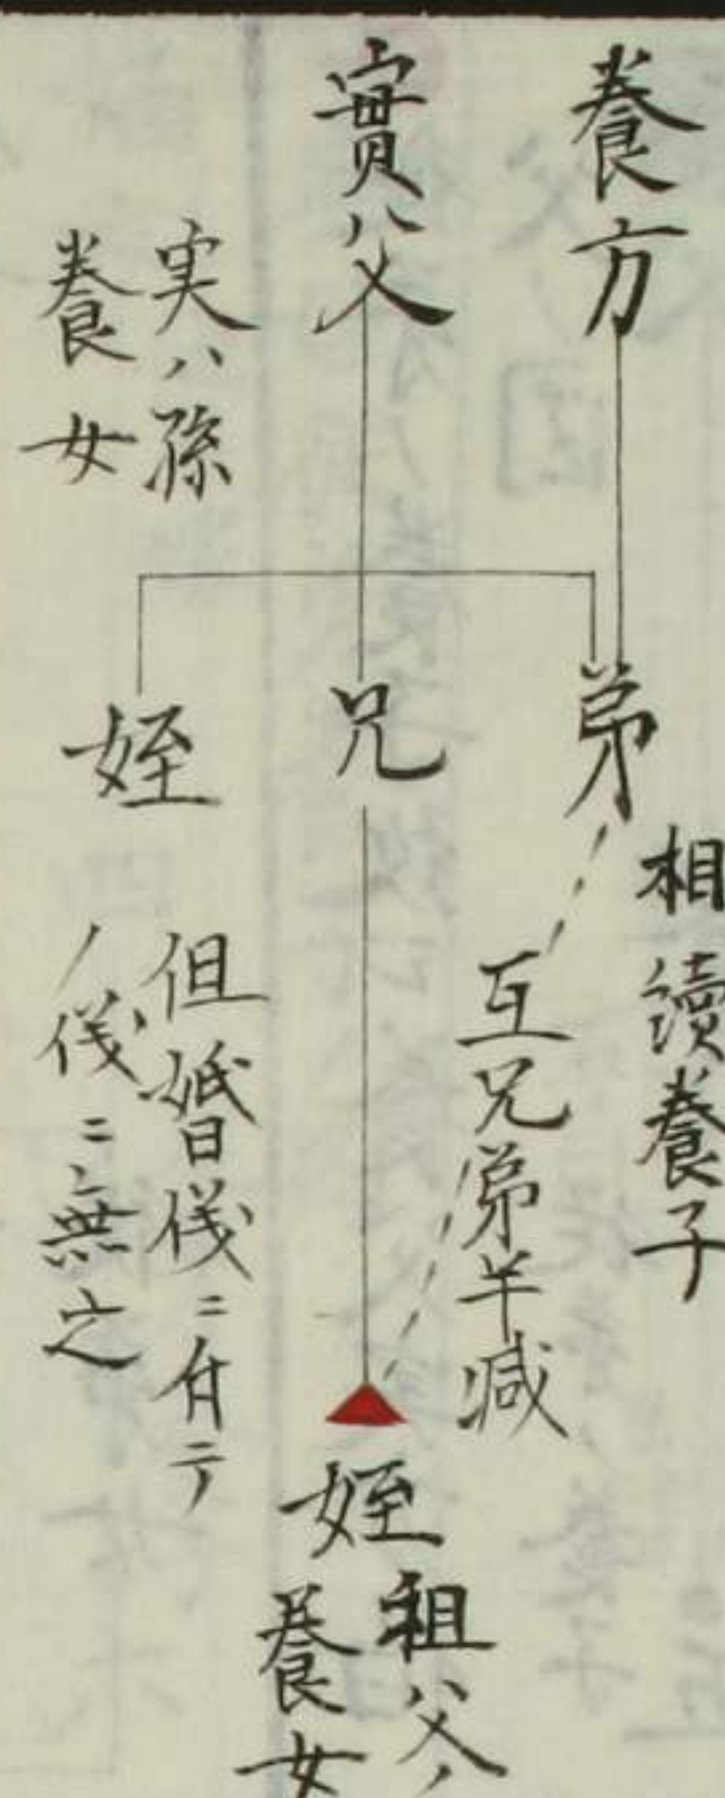 養方
實父
実ハ孫
養女
弟
兄
姪
相續養子
互兄弟半減
但婚儀ニ付テ
ノ儀ニ無之
姪
祖父ノ
養女